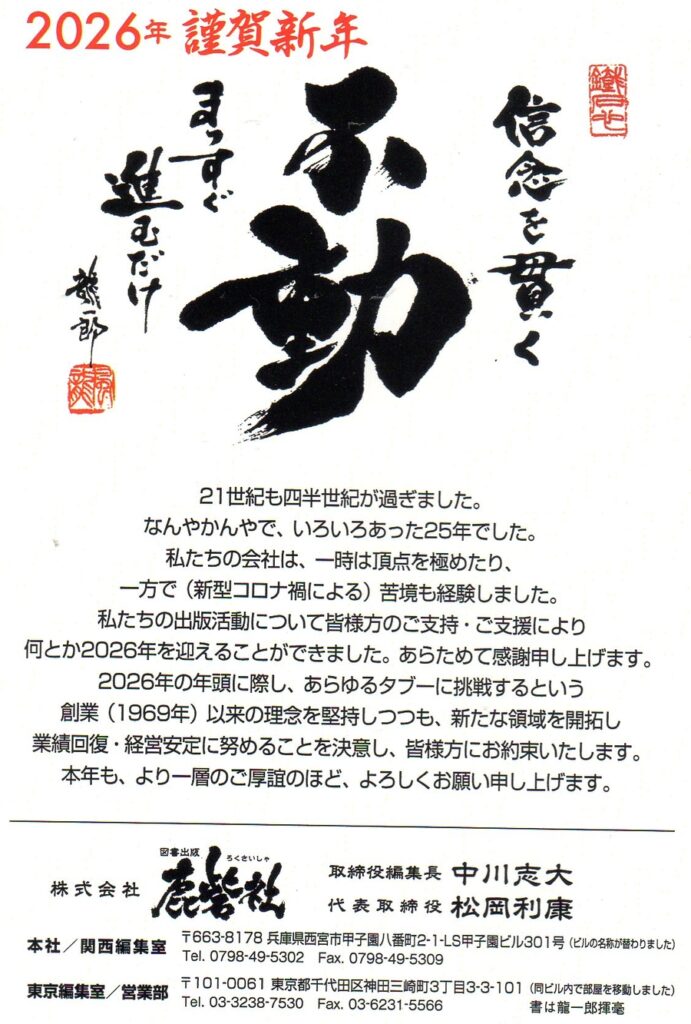 2026年 謹賀新年
信念を貫く
不動
まっすぐ
進むだけ
龍一郎
21世紀も四半世紀が過ぎました。
なんやかんやで、いろいろあった25年でした。
私たちの会社は、一時は頂点を極めたり、
一方で（新型コロナ禍による）苦境も経験しました。
私たちの出版活動について皆様方のご支持・ご支援により
何とか2026年を迎えることができました。あらためて感謝申し上げます。
2026年の年頭に際し、あらゆるタブーに挑戦するという
創業（1969年）以来の理念を堅持しつつも、新たな領域を開拓し
業績回復・経営安定に努めることを決意し、皆様方にお約束いたします。
本年も、より一層のご厚誼のほど、よろしくお願い申し上げます。
図書出版
ろくさいしゃ
株式会社 鹿砦社
取締役編集長 中川志大
代表取締役 松岡利康
本社／関西編集室 〒663-8178 兵庫県西宮市甲子園八番町2-1-LS甲子園ビル301号（ビルの名称が替わりました）
Tel. 0798-49-5302 Fax. 0798-49-5309
東京編集室／営業部 〒101-0061 東京都千代田区神田三崎町3丁目3-3-101（同ビル内で部屋を移動しました）
Tel. 03-3238-7530 Fax. 03-6231-5566
書は龍一郎揮毫